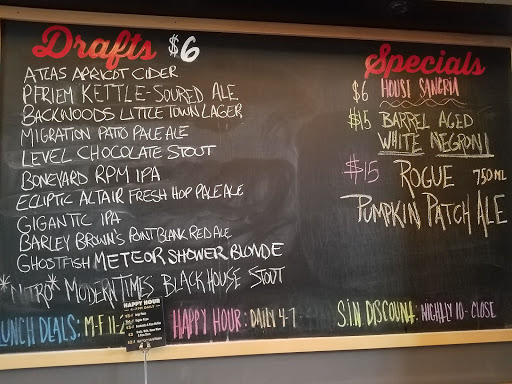 Drafts $6
ATLAS APRICOT CIDER
PFRIEM KETTLE-SOURED ALE
BACKWOODS LITTLE TOWN LAGER
MIGRATION PATIO PALE ALE
LEVEL CHOCOLATE STOUT
BONEYARD RPM IPA
ECLIPTIC ALTAIR FRESH HOP PALE ALE
GIGANTIC IPA
BARLEY BROWN'S POINT BLANK RED ALE
GHOSTFISH METEOR SHOWER BLONDE
*NITRO* MODERN TIMES BLACK HOUSE STOUT
Specials
$6 HOUSE SANGRIA
$15 BARREL AGED
WHITE NEGRONI
$15 ROGUE 750 ML
PUMPKIN PATCH ALE
LUNCH DEALS: M-F 11-
HAPPY HOUR
HAPPY HOUR: DAILY 4-7
S.I.N DISCOUNT: NIGHTLY 10-CLOSE